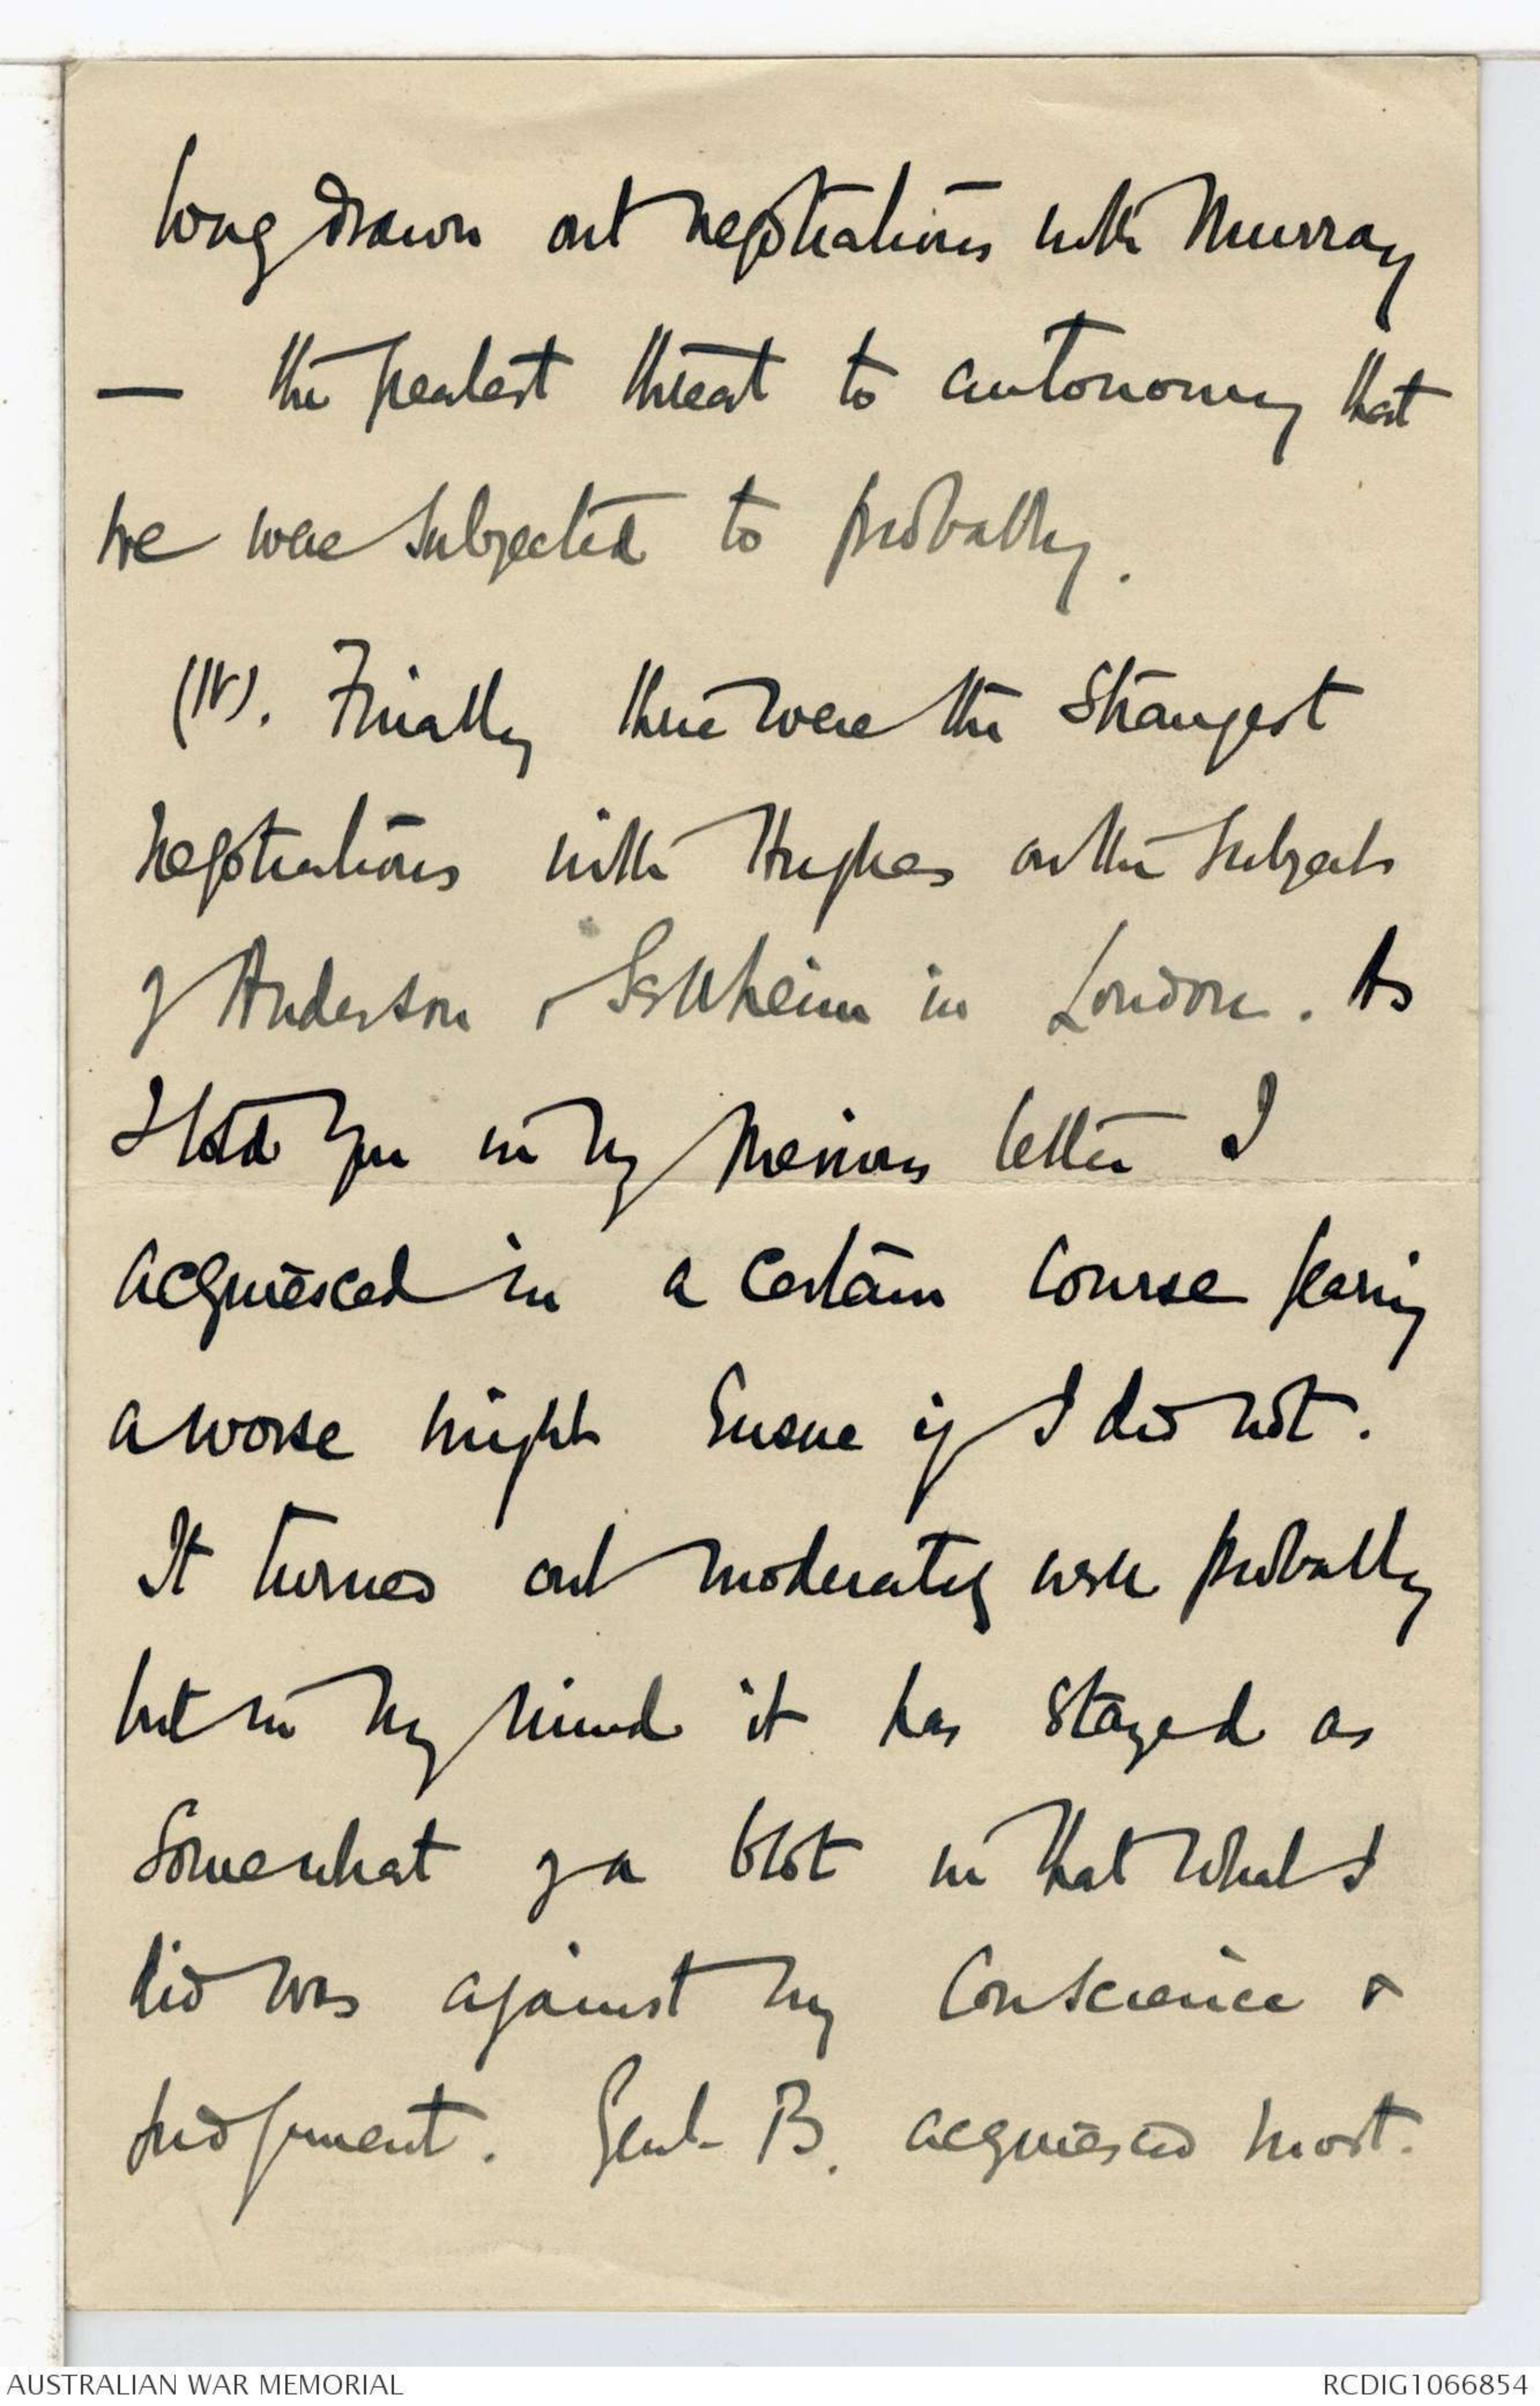 long drawn out negotiations with Murray
— the greatest threat to autonomy that
we were subjected to probably.
(IV). Finally there were the strangest
negotiations with Hughes on the subjects
of Anderson & Sellheim in London. As
I told you in my previous letter I
acquiesced in a certain course fearing
a worse might ensue if I did not.
It turned out moderately well probably
but in my mind it has stayed as
somewhat of a blot in that what I
did was against my conscience &
judgment. Genl B. acquiesced most.
AUSTRALIAN WAR MEMORIAL
RCDIG1066854